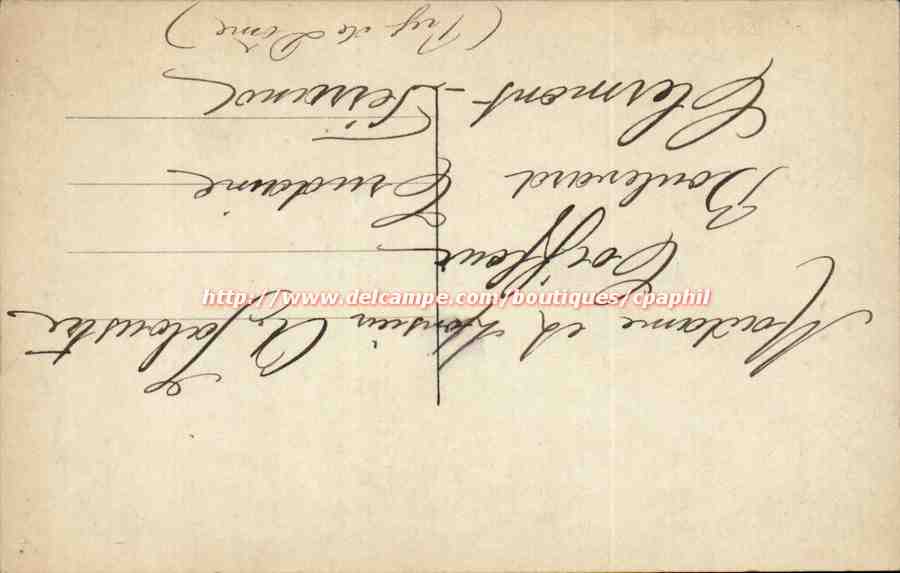 Madame et Monsieur
Coiffeur
Boulevard Trudaine
Clermont-Ferrand
(Puy de Dôme)
http://www.delcampe.com/boutiques/cpaphil